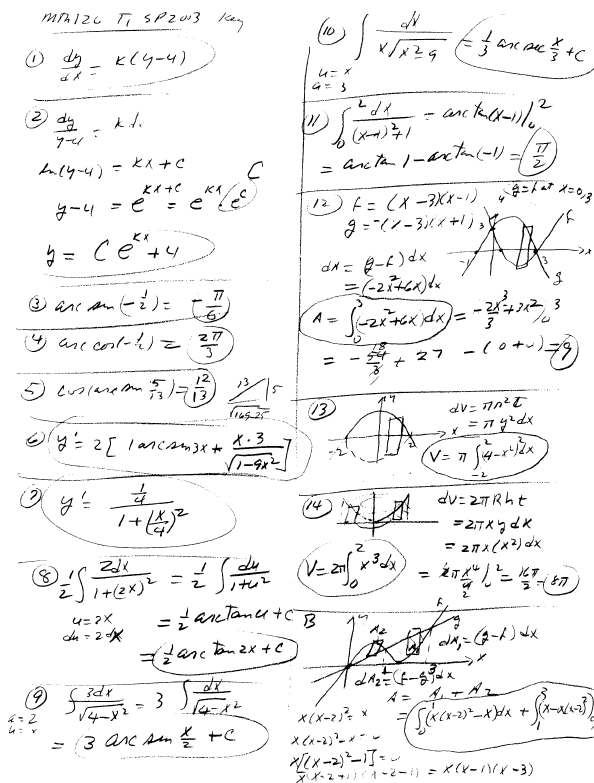 MTH126 T1 SP2003 Key
① dy/dx = K(y-4)
② dy/(y-4) = K dx
ln(y-4) = Kx + C
y-4 = e^(Kx+C) = e^(Kx) (e^C) C
y = C e^(Kx) + 4
③ arc sin(-1/2) = -π/6
④ arc cos(-1/2) = 2π/3
5) cos(arc sin 5/13) = 12/13
13 5
√(169-25)
⑥ y' = 2[1 arcsin3x + x·3/√(1-9x²)]
⑦ y' = (1/4)/(1+(x/4)²)
⑧ 1/2 ∫ 2dx/(1+(2x)²) = 1/2 ∫ du/(1+u²)
u = 2x
du = 2dx
= 1/2 arctan u + C
= 1/2 arc tan 2x + C
⑨ ∫ 3dx/√(4-x²) = 3 ∫ dx/√(4-x²)
a = 2
u = x
= 3 arc sin x/2 + C
⑩ ∫ dx/(x√(x²-9)) = 1/3 arc sec x/3 + C
u = x
a = 3
11 ∫₀² dx/((x-1)²+1) = arctan(x-1)|₀²
= arctan 1 - arc tan(-1) = π/2
⑫ f = (x-3)(x-1)
g = -(x-3)(x+1)
g=f at x=0,3
y f
3
-1 3 x
g
dA = (g-f)dx
= (-2x²+6x)dx
A = ∫₀³ (-2x²+6x)dx = -2x³/3 + 3x²|₀³
= -54/3 + 27 - (0+0) = 9
18
⑬ y
-2 2 x
dV = πr²t
= πy²dx
V = π ∫₋₂² (4-x²)² dx
⑭ dV = 2πRht
= 2πxydx
= 2πx(x²)dx
V = 2π ∫₀² x³dx = 2πx⁴/4|₀² = 16π/2 = 8π
B y f
A₂ g
1 3 x
dA₁ = (g-f)dx
dA₂ = (f-g)dx
A = A₁ + A₂
= ∫₀¹ (x(x-2)²-x)dx + ∫₁³ (x-x(x-2)²)
x(x-2)² = x
x(x-2)² - x = 0
x[(x-2)²-1] = 0
x(x-2+1)(x-2-1) = x(x-1)(x-3)